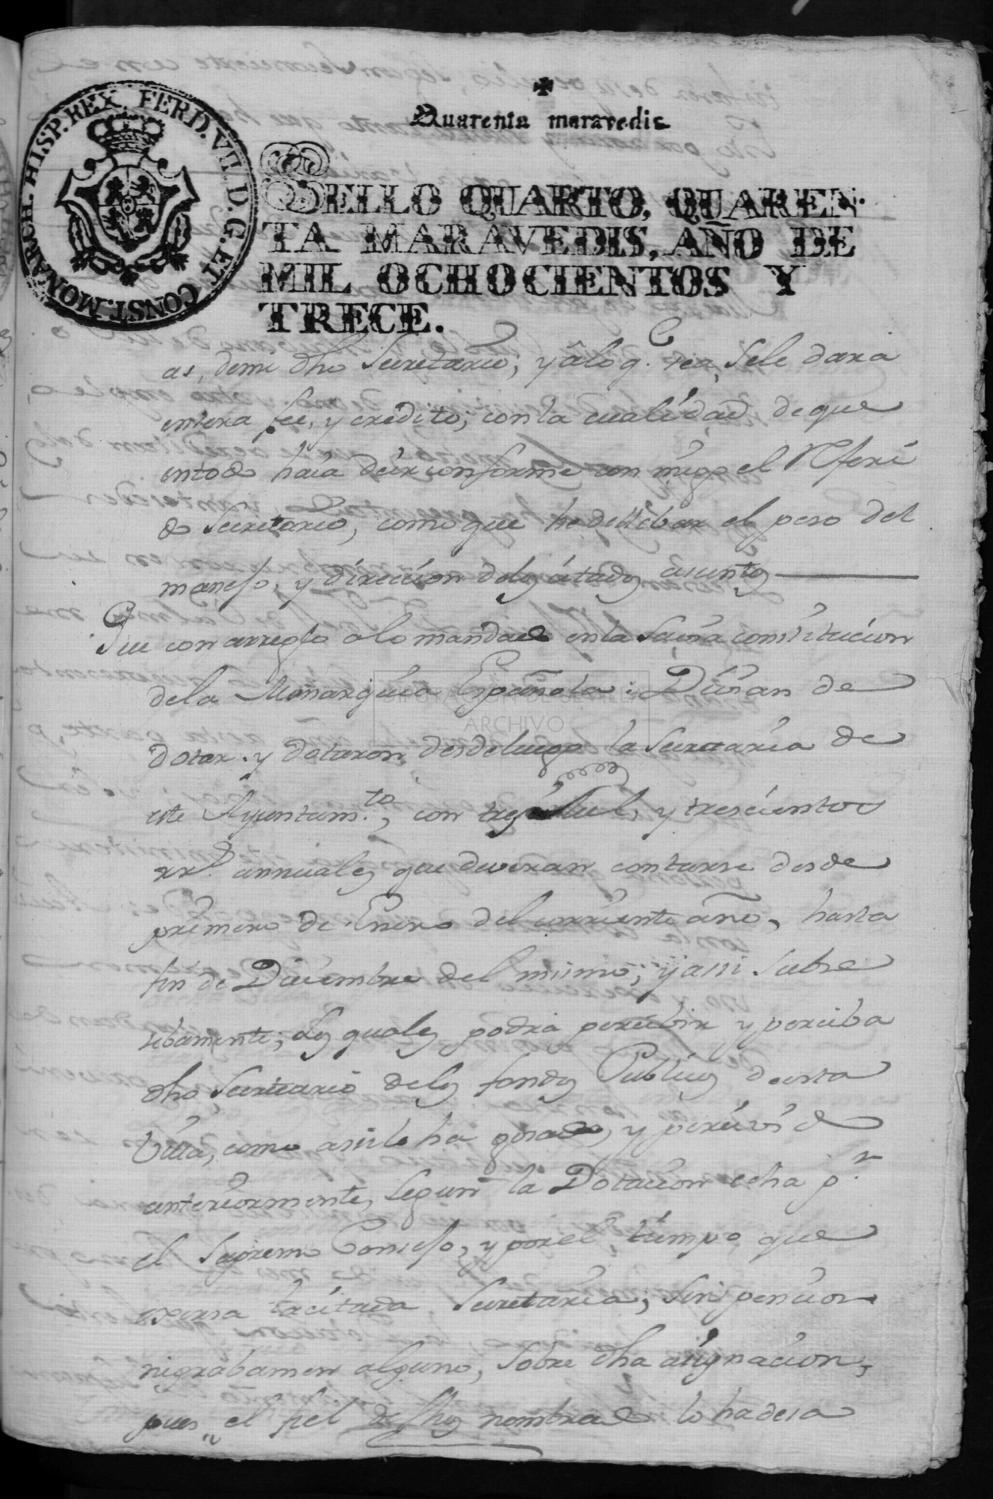 ✠
Quarenta maravedis
SELLO QUARTO, QUAREN-
TA MARAVEDIS, AÑO DE
MIL OCHOCIENTOS Y
TRECE.
FERD. VII. D. G. ET CONST. MONARCH. HISP. REX
as, demi dho Secretario; y âlo q.e sea, sele dara
entera fee, y credito; con la cualidad, de que
entodo haia deir conforme con migo el Referi
do Secretario, como que ha dellebar el peso del
manejo, y dirección delos citados asuntos
Que con arreglo alo mandado en la Savia constitucion
dela Monarquia Española: Devian de
dotar y dotaron, desde luego la Secretaria de
este Ayuntam.to, con tres Mil, y trescientos
rr.s annuales que deveran contarse desde
primero de Enero del corriente año, hasta
fin de Diciembre del mismo; y assi Subce
sibamente; los quales podra percibir y perciba
dho Secretario delos fondos Publicos de esta
Villa, como assi lo ha gosado, y percivido
anteriormente, Segun la Dotacion echa p.r
el Supremo Consejo, y por el tiempo que
exersa la citada Secretaria; sin pencion
nigrabamen alguno, Sobre dha asignacion,
pues el fiel de fhos nombrado lo hadesa
DIPUTACION DE SEVILLA
ARCHIVO